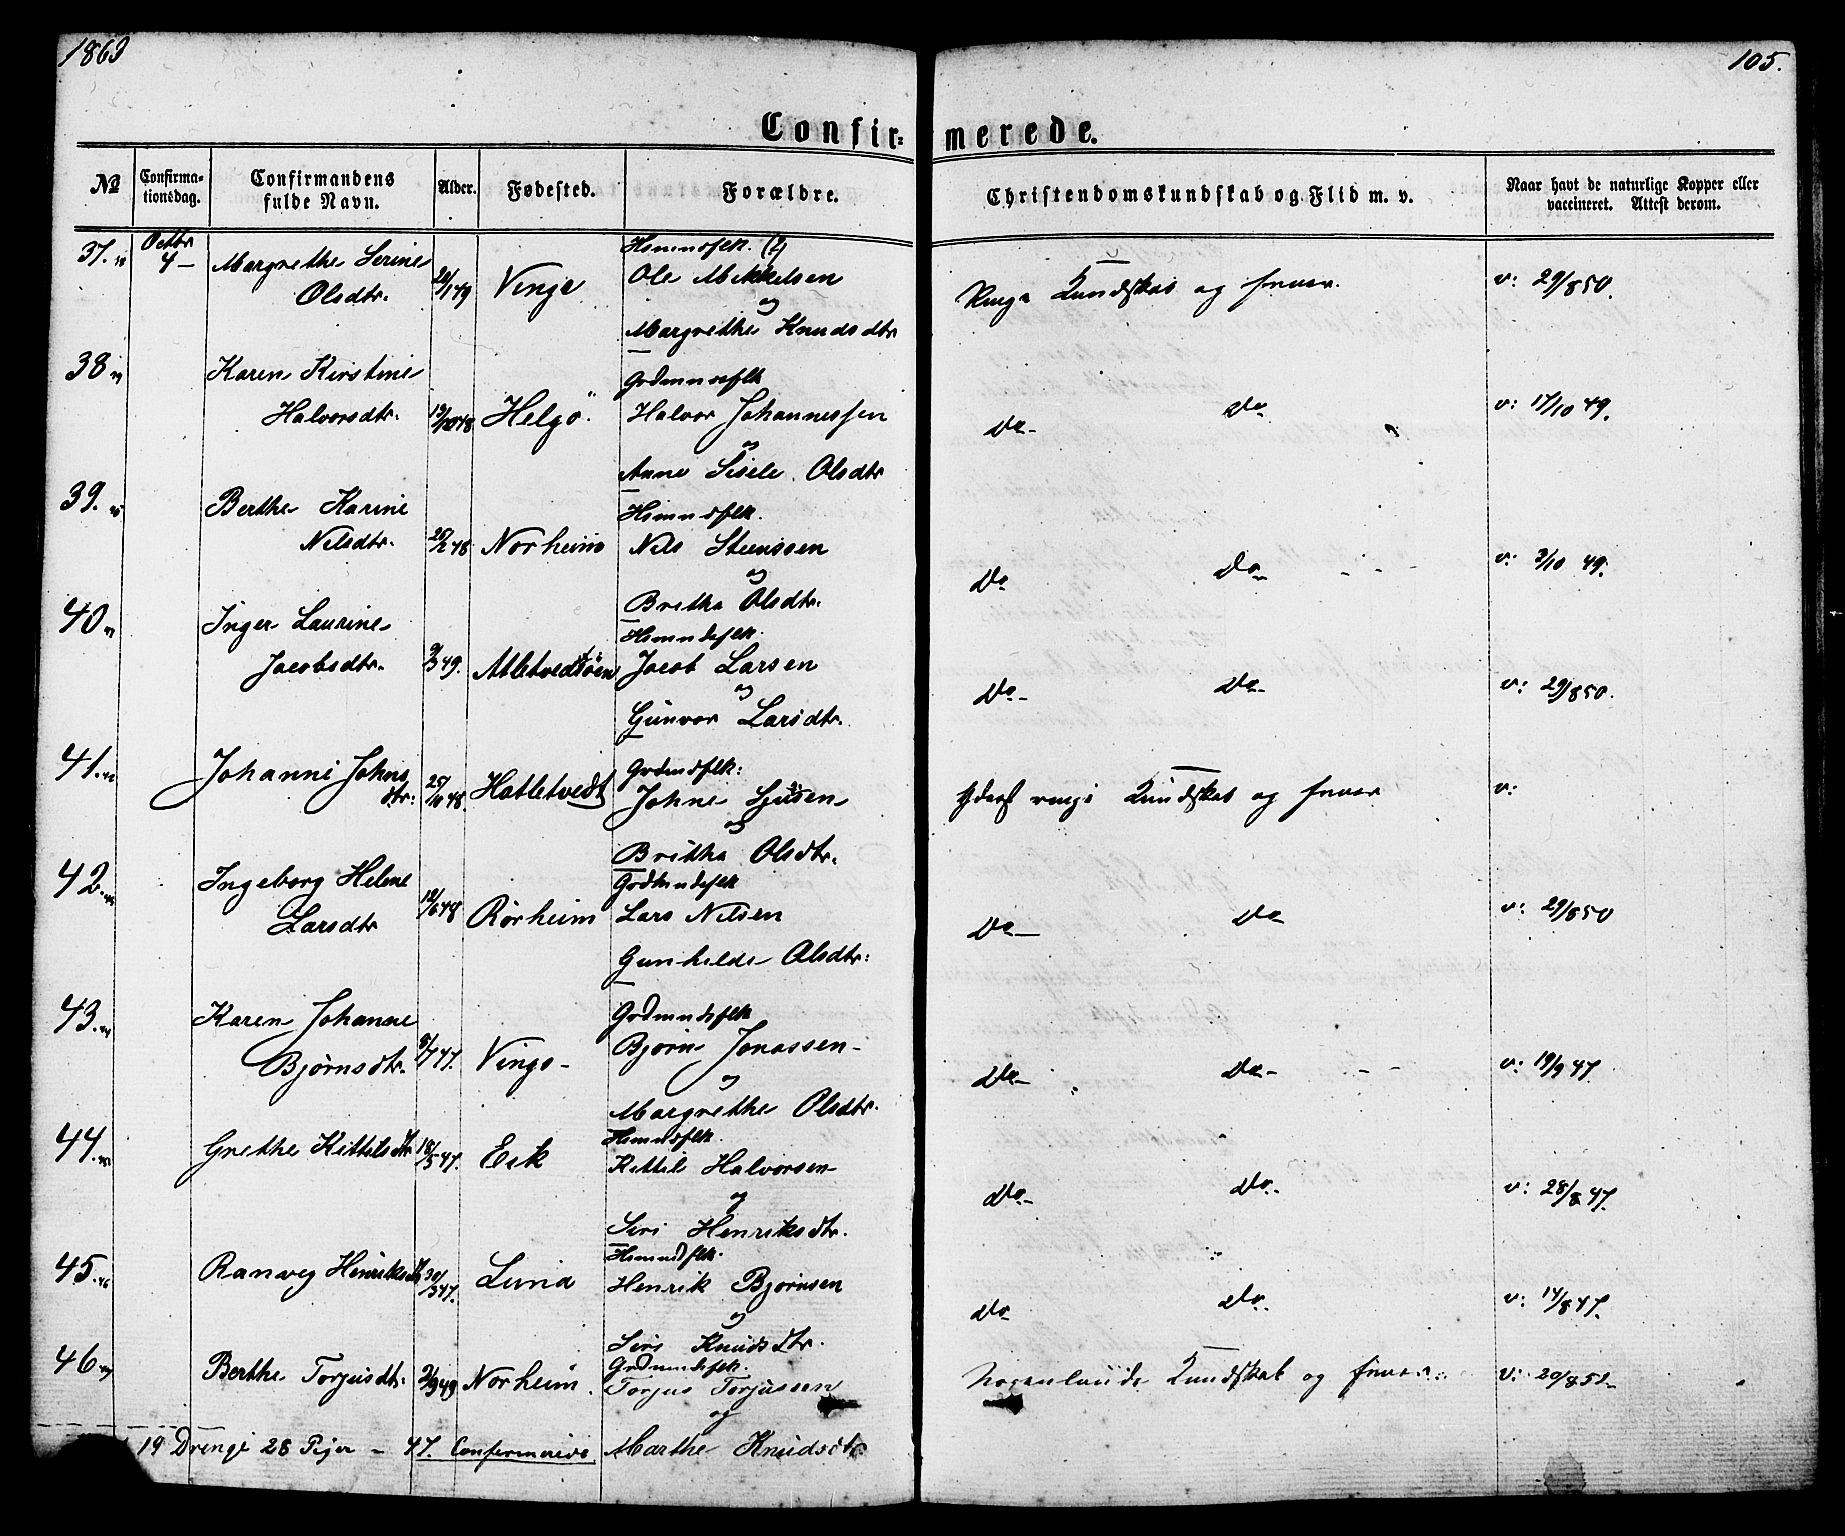 1863
105.
Confir=
merede.
No
Confirma-
tionsdag.
Confirmandens
fulde Navn.
Alder.
Fødested.
Forældre.
Christendomskundskab og Flid m. v.
Naar havt de naturlige Kopper eller
vaccineret. Attest derom.
37. Octbr
4 Margrethe Serine
Olsdtr. 49 Vinge
Ole Mikkelsen
og
Margrethe Knudsdtr
Kundskab og v: 29/8 50.
38 Karen Kirstine
Halvorsdtr. 48 Helgö.
Halvor Johannessen
og
Anne Sisele Olsdtr
Do Do v: 17/10 49.
39. Berthe Karine
Nilsdtr. 48 Norheim
Nils Steensen
og
Britha Olsdtr.
Do Do v: 3/10 49.
40 Inger Laurine
Jacobsdtr. 9/3 49.
Jacob Larsen
og
Gunvor Larsdtr.
Do Do v: 29/8 50.
41. Johanne Johns
dtr: 48. Hatletvedt
Johne
og
Britha Olsdtr.
Kundskab og v:
42. Ingeborg Helene
Larsdtr 12/6 48 Rørheim
Lars Nilsen
Gunhilde Olsdtr:
Do Do v: 29/8 50
43. Karen Johanne
Bjørnsdtr. 47. Vinge
Bjørn Jonassen
og
Margrethe Olsdtr.
Do Do v: 19/9 47.
44. Grethe Kittilsdtr 18/5 47. Eek
Kittil Halvorsen
og
Siri Henriksdtr.
Do Do v: 28/8 47.
45. Ranveg Henriksdtr 30/3 47. Lund
Henrik Bjørnsen
og
Siri Knudsdtr.
Do Do v: 14/8 47.
46 Berthe Torjusdtr. 2/9 49 Norheim.
Torjus Torjussen
og
Marthe Knudsdtr
Kundskab og v:
19 Drenge 28 Piger – 47. Confirmerede